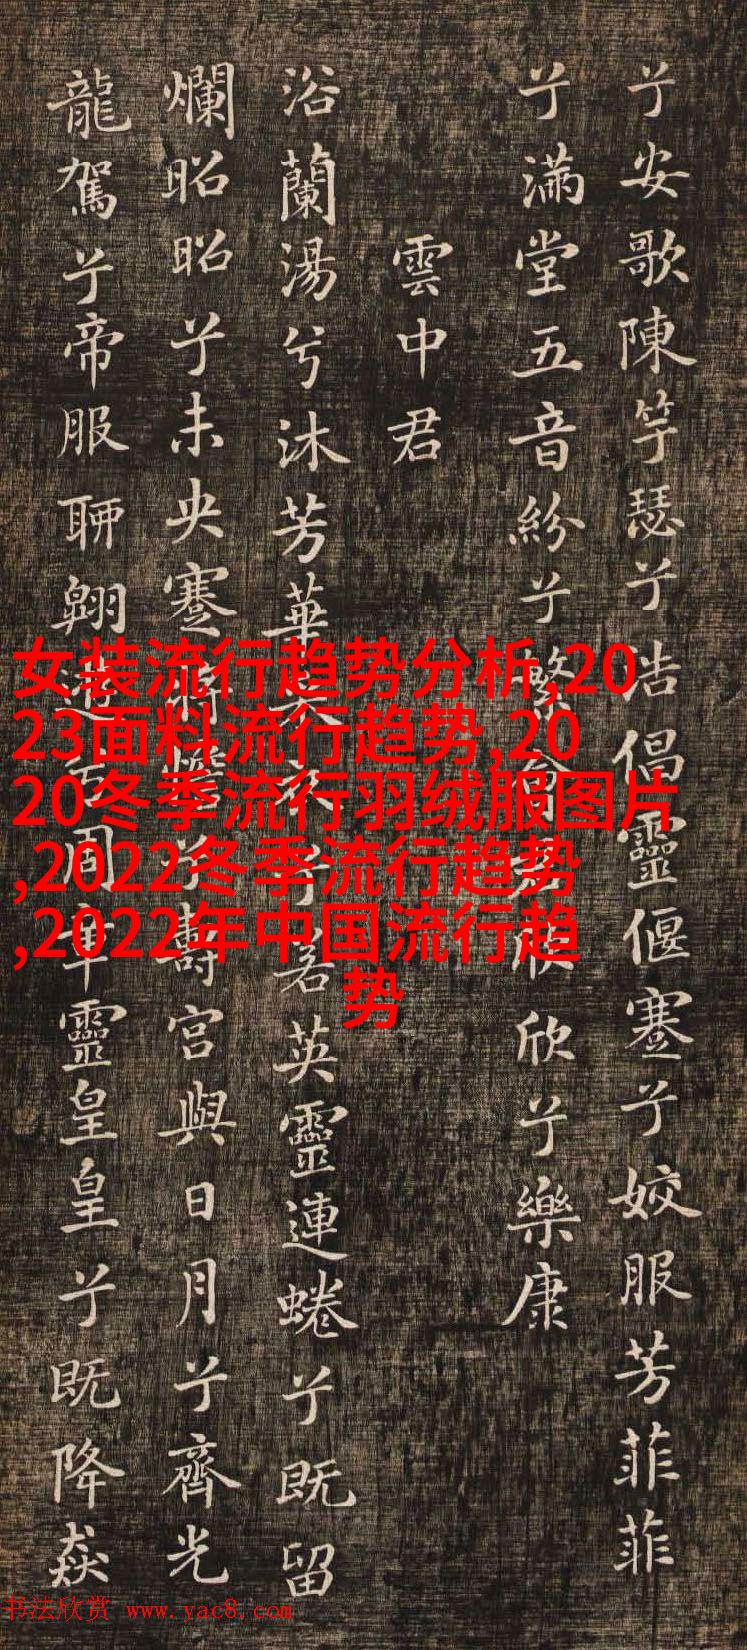 兮安歌陳竽瑟兮浩倡靈偃蹇兮姣服芳菲菲
兮滿堂五音紛兮繁會君欣欣兮樂康
雲中君
浴蘭湯兮沐芳華采衣兮若英靈連蜷兮既留
爛昭昭兮未央蹇將憺兮壽宮與日月兮齊光
龍駕兮帝服聊翱遊兮周章靈皇皇兮既降猋
女装流行趋势分析,20
23面料流行趋势,20
20冬季流行羽绒服图片
,2022冬季流行趋势
,2022年中国流行趋
势
书法欣赏 www.yac8.com